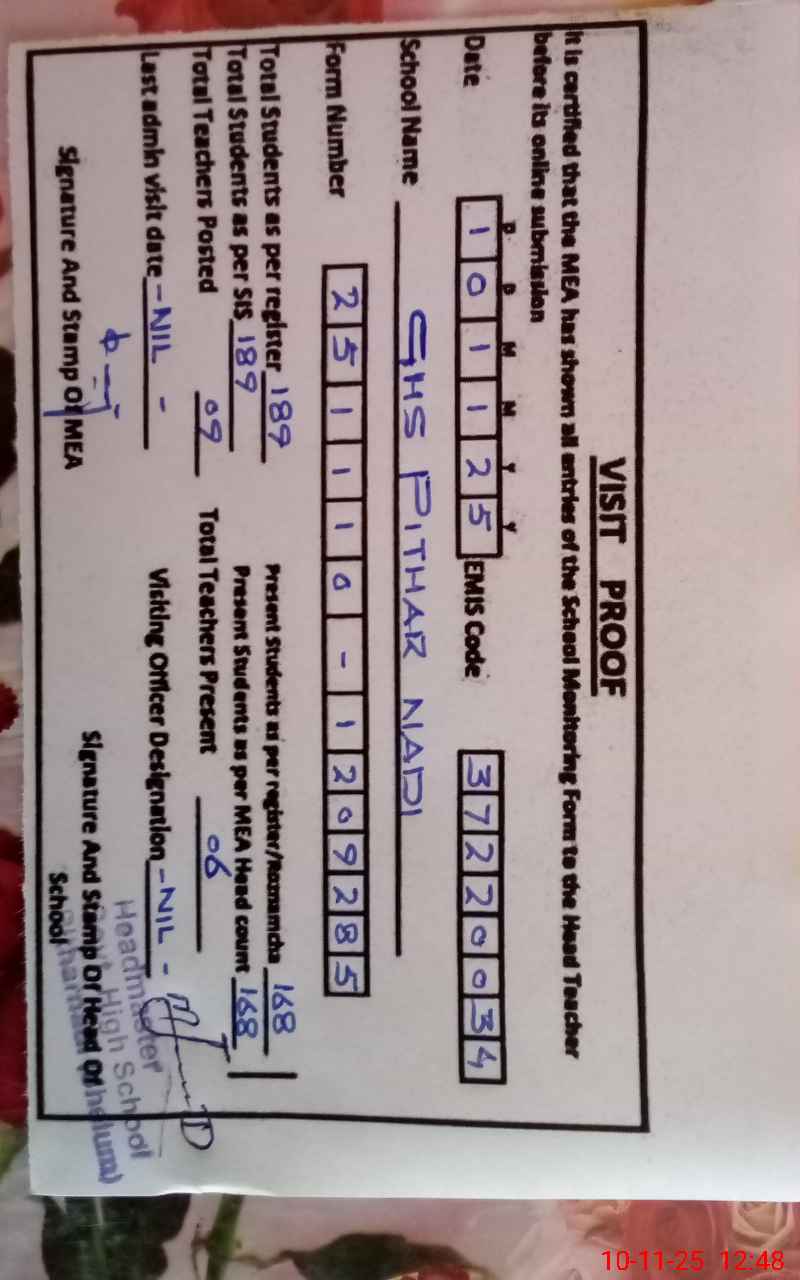 VISIT PROOF
It is certified that the MEA has shown all entries of the School Monitoring Form to the Head Teacher
before its online submission
D D M M Y Y
Date 1 0 1 1 2 5 EMIS Code 3 7 2 2 0 0 3 4
School Name GHS PITHAR NADI
Form Number 2 5 1 1 1 0 - 1 2 0 9 2 8 5
Total Students as per register 189 Present Students as per register/Roznamcha 168
Total Students as per SIS 189 Present Students as per MEA Head count 168
Total Teachers Posted 09 Total Teachers Present 06
Last admin visit date - NIL - Visiting Officer Designation - NIL -
Signature And Stamp Of MEA Signature And Stamp Of Head Of
School
Headmaster
High School
10-11-25 12:48